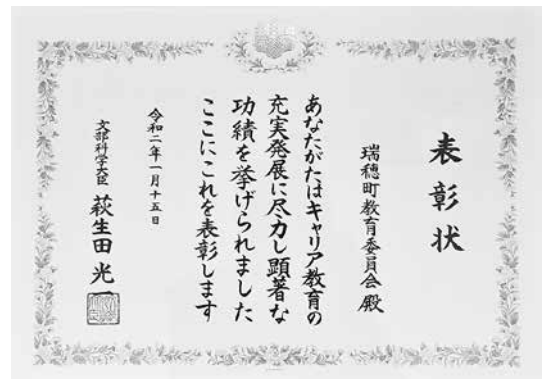 表彰状
瑞穂町教育委員会殿
あなたがたはキャリア教育の
充実発展に尽力し顕著な
功績を挙げられました
ここにこれを表彰します
令和二年一月十五日
文部科学大臣 萩生田光一